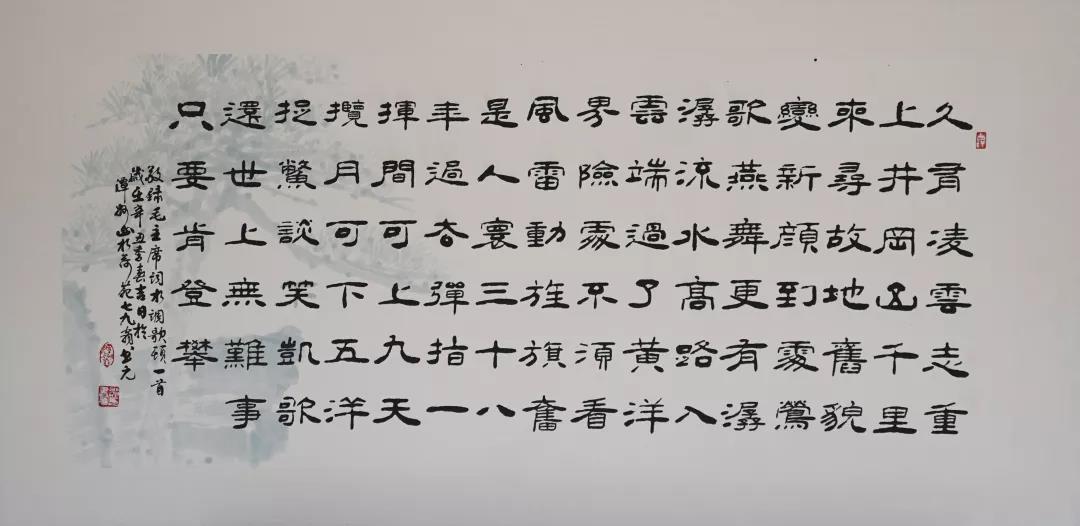 久有凌雲志重
上井岡山千里
來尋故地舊貌
變新顔到處鶯
歌燕舞更有潺
潺流水高路入
雲端過了黃洋
界險處不須看
風雷動旌旗奮
是人寰三十八
年過去彈指一
揮間可上九天
攬月可下五洋
捉鱉談笑凱歌
還世上無難事
只要肯登攀
敬錄毛主席詞水調歌頭一首
歲在辛丑季春吉日於
山水荷苑七九翁